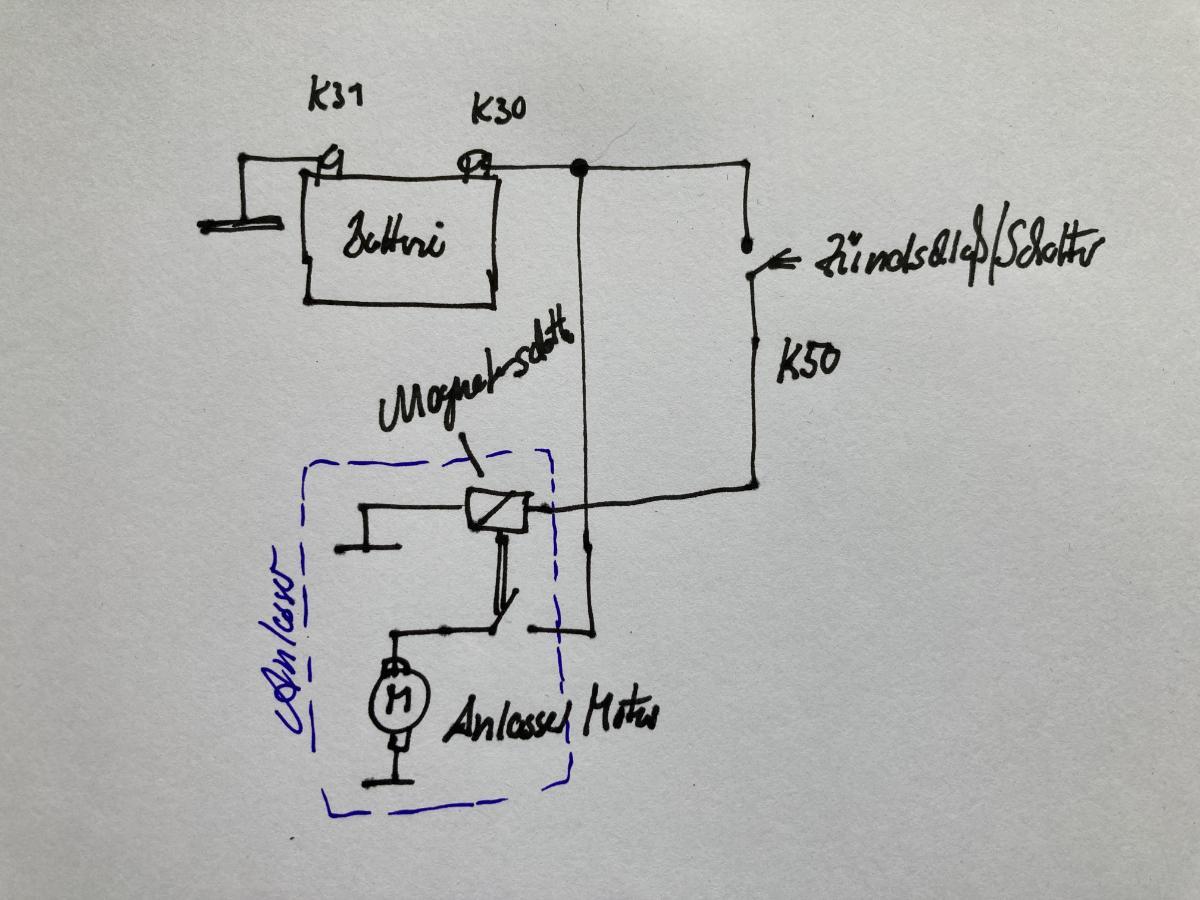 K31
K30
Batterie
Zündschloß/Schalter
K50
Magnetschalt
Anlasser
M
Anlasser Motor